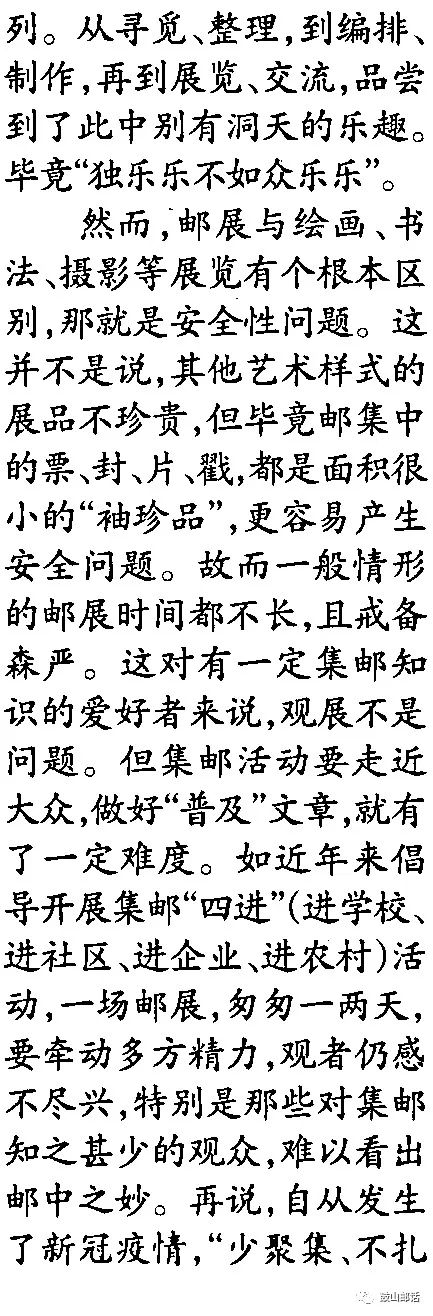 列。从寻觅、整理,到编排、
制作,再到展览、交流,品尝
到了此中别有洞天的乐趣。
毕竟“独乐乐不如众乐乐”。
然而,邮展与绘画、书
法、摄影等展览有个根本区
别,那就是安全性问题。这
并不是说,其他艺术样式的
展品不珍贵,但毕竟邮集中
的票、封、片、戳,都是面积很
小的“袖珍品”,更容易产生
安全问题。故而一般情形
的邮展时间都不长,且戒备
森严。这对有一定集邮知
识的爱好者来说,观展不是
问题。但集邮活动要走近
大众,做好“普及”文章,就有
了一定难度。如近年来倡
导开展集邮“四进”(进学校、
进社区、进企业、进农村)活
动,一场邮展,匆匆一两天,
要牵动多方精力,观者仍感
不尽兴,特别是那些对集邮
知之甚少的观众,难以看出
邮中之妙。再说,自从发生
了新冠疫情,“少聚集、不扎
鼓山邮话